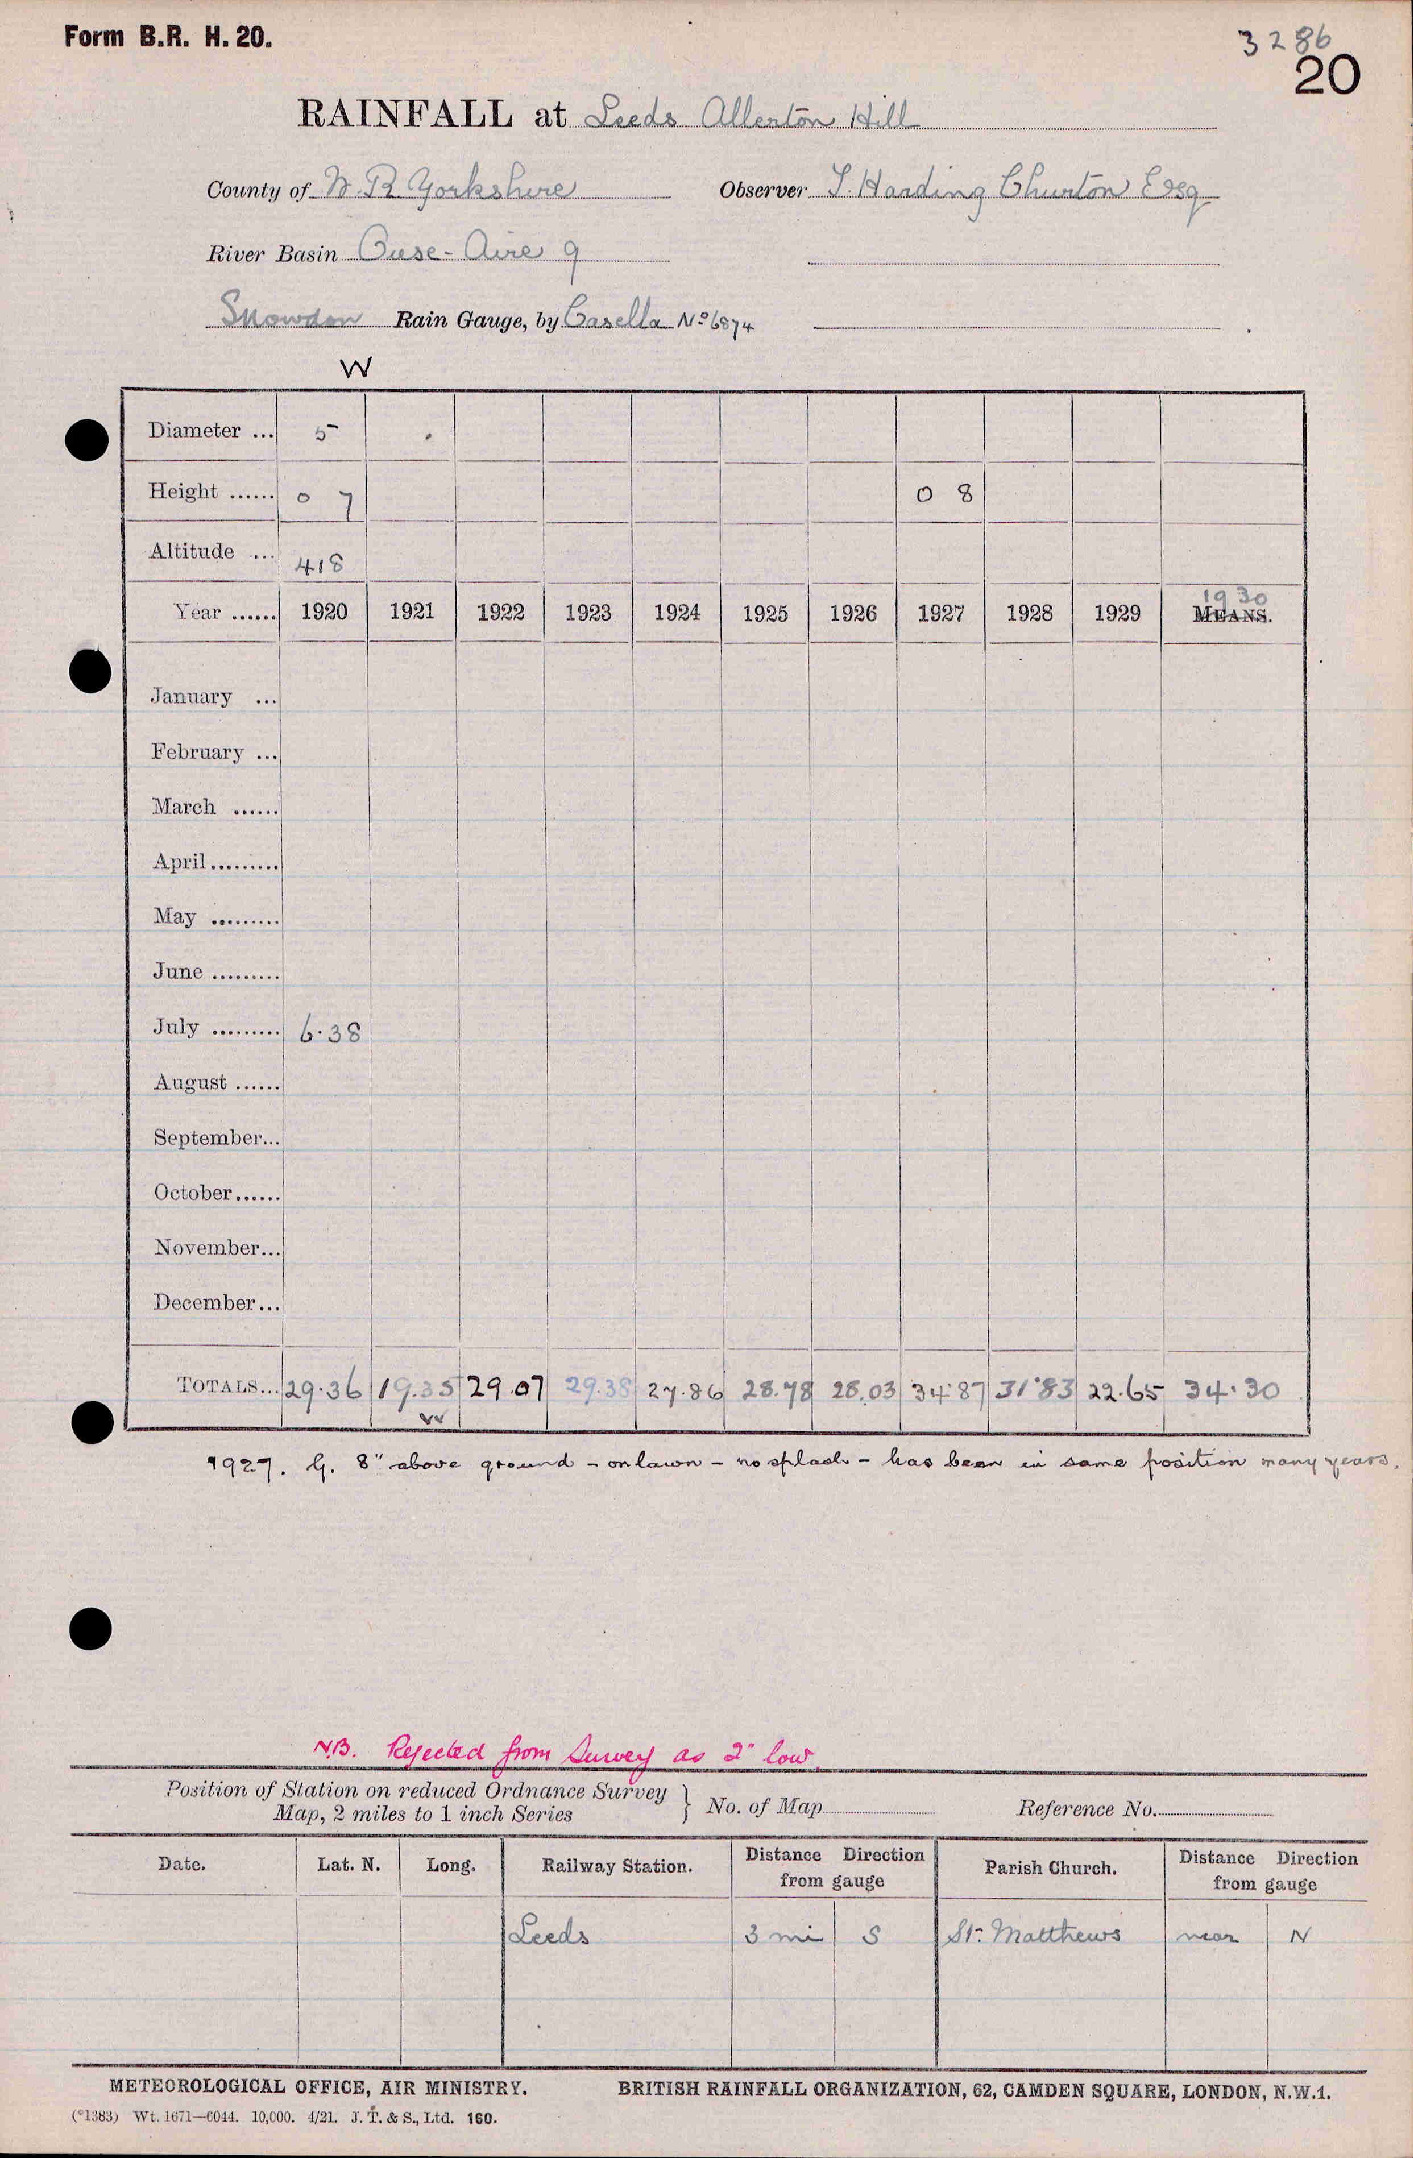 Form B.R. H. 20.
3286
20
RAINFALL at Leeds Allerton Hill
County of W. R. Yorkshire Observer T. Harding Churton Esq
River Basin Ouse - Aire 9
Snowdon Rain Gauge, by Casella No 6874
W
Diameter ... 5
Height ...... 0 7 0 8
Altitude ... 418
Year ...... 1920 1921 1922 1923 1924 1925 1926 1927 1928 1929 MEANS. 1930
January ...
February ...
March ......
April.........
May .........
June .........
July ......... 6.38
August ......
September...
October......
November...
December...
TOTALS... 29.36 19.35 29.07 29.38 27.86 28.78 28.03 34.87 31.83 22.65 34.30
W
1927. G. 8" above ground - on lawn - no splash - has been in same position many years.
N.B. Rejected from Survey as 2" low.
Position of Station on reduced Ordnance Survey
Map, 2 miles to 1 inch Series } No. of Map Reference No.
Date. Lat. N. Long. Railway Station. Distance Direction from gauge Parish Church. Distance Direction from gauge
Leeds 3 mi S St. Matthews near N
METEOROLOGICAL OFFICE, AIR MINISTRY. BRITISH RAINFALL ORGANIZATION, 62, CAMDEN SQUARE, LONDON, N.W.1.
(*1383) Wt. 1671—6044. 10,000. 4/21. J. T. & S., Ltd. 160.